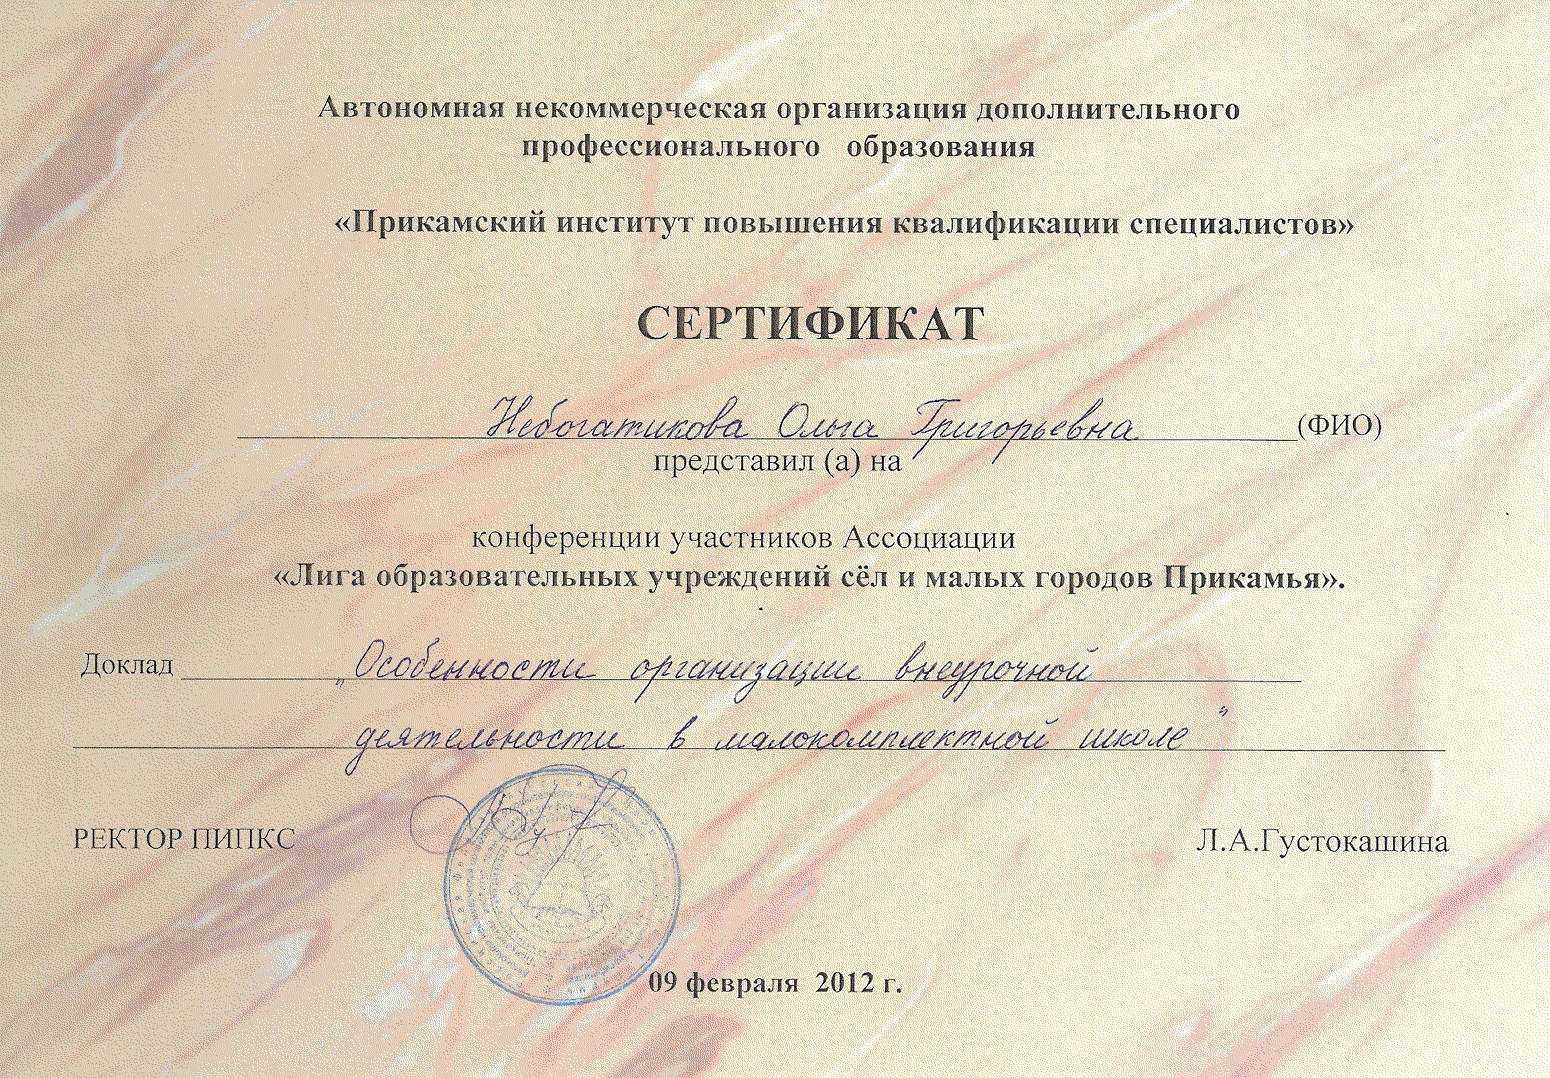 Автономная некоммерческая организация дополнительного
профессионального образования
«Прикамский институт повышения квалификации специалистов»
СЕРТИФИКАТ
Небогатикова Ольга Григорьевна (ФИО)
представил (а) на
конференции участников Ассоциации
«Лига образовательных учреждений сёл и малых городов Прикамья».
Доклад „Особенности организации внеурочной
деятельности в малокомплектной школе"
РЕКТОР ПИПКС Л.А.Густокашина
09 февраля 2012 г.